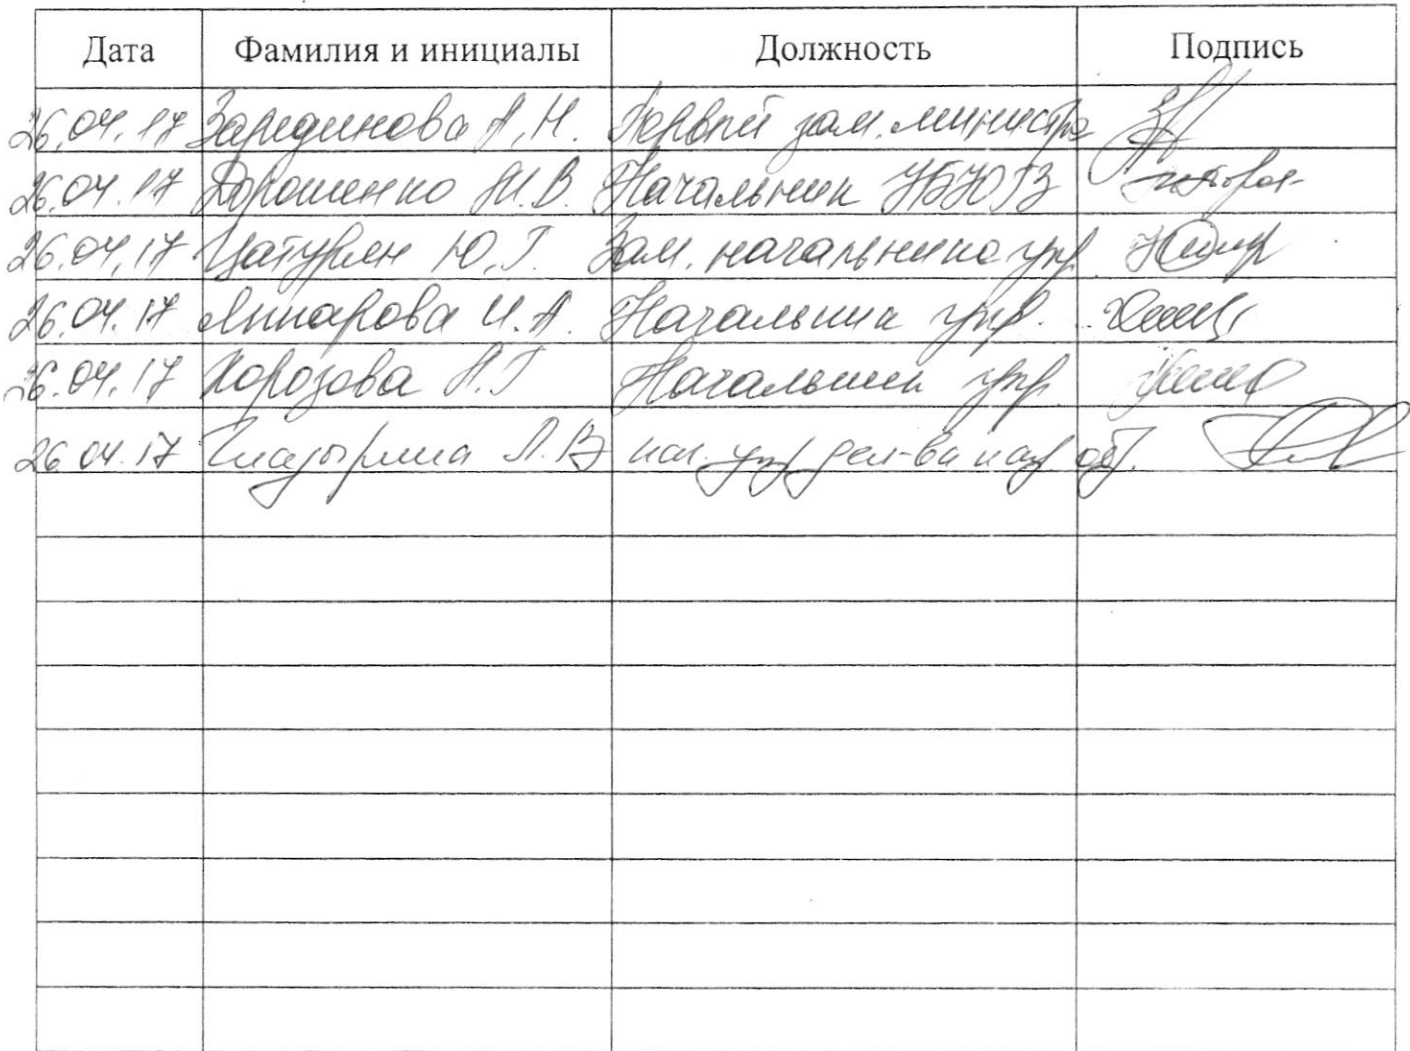 Дата Фамилия и инициалы Должность Подпись
26.04.17 Зарединова А.Н. Первый зам. министра
26.04.17 Дорошенко И.В. Начальник УБУОГЗ
26.04.17 Цатурян Ю.Г. Зам. начальника упр.
26.04.17 И.А. Начальник упр.
26.04.17 Хорозова А.Г. Начальник упр.
26.04.17 Глазырина Л.В. нач. упр дел-ва и